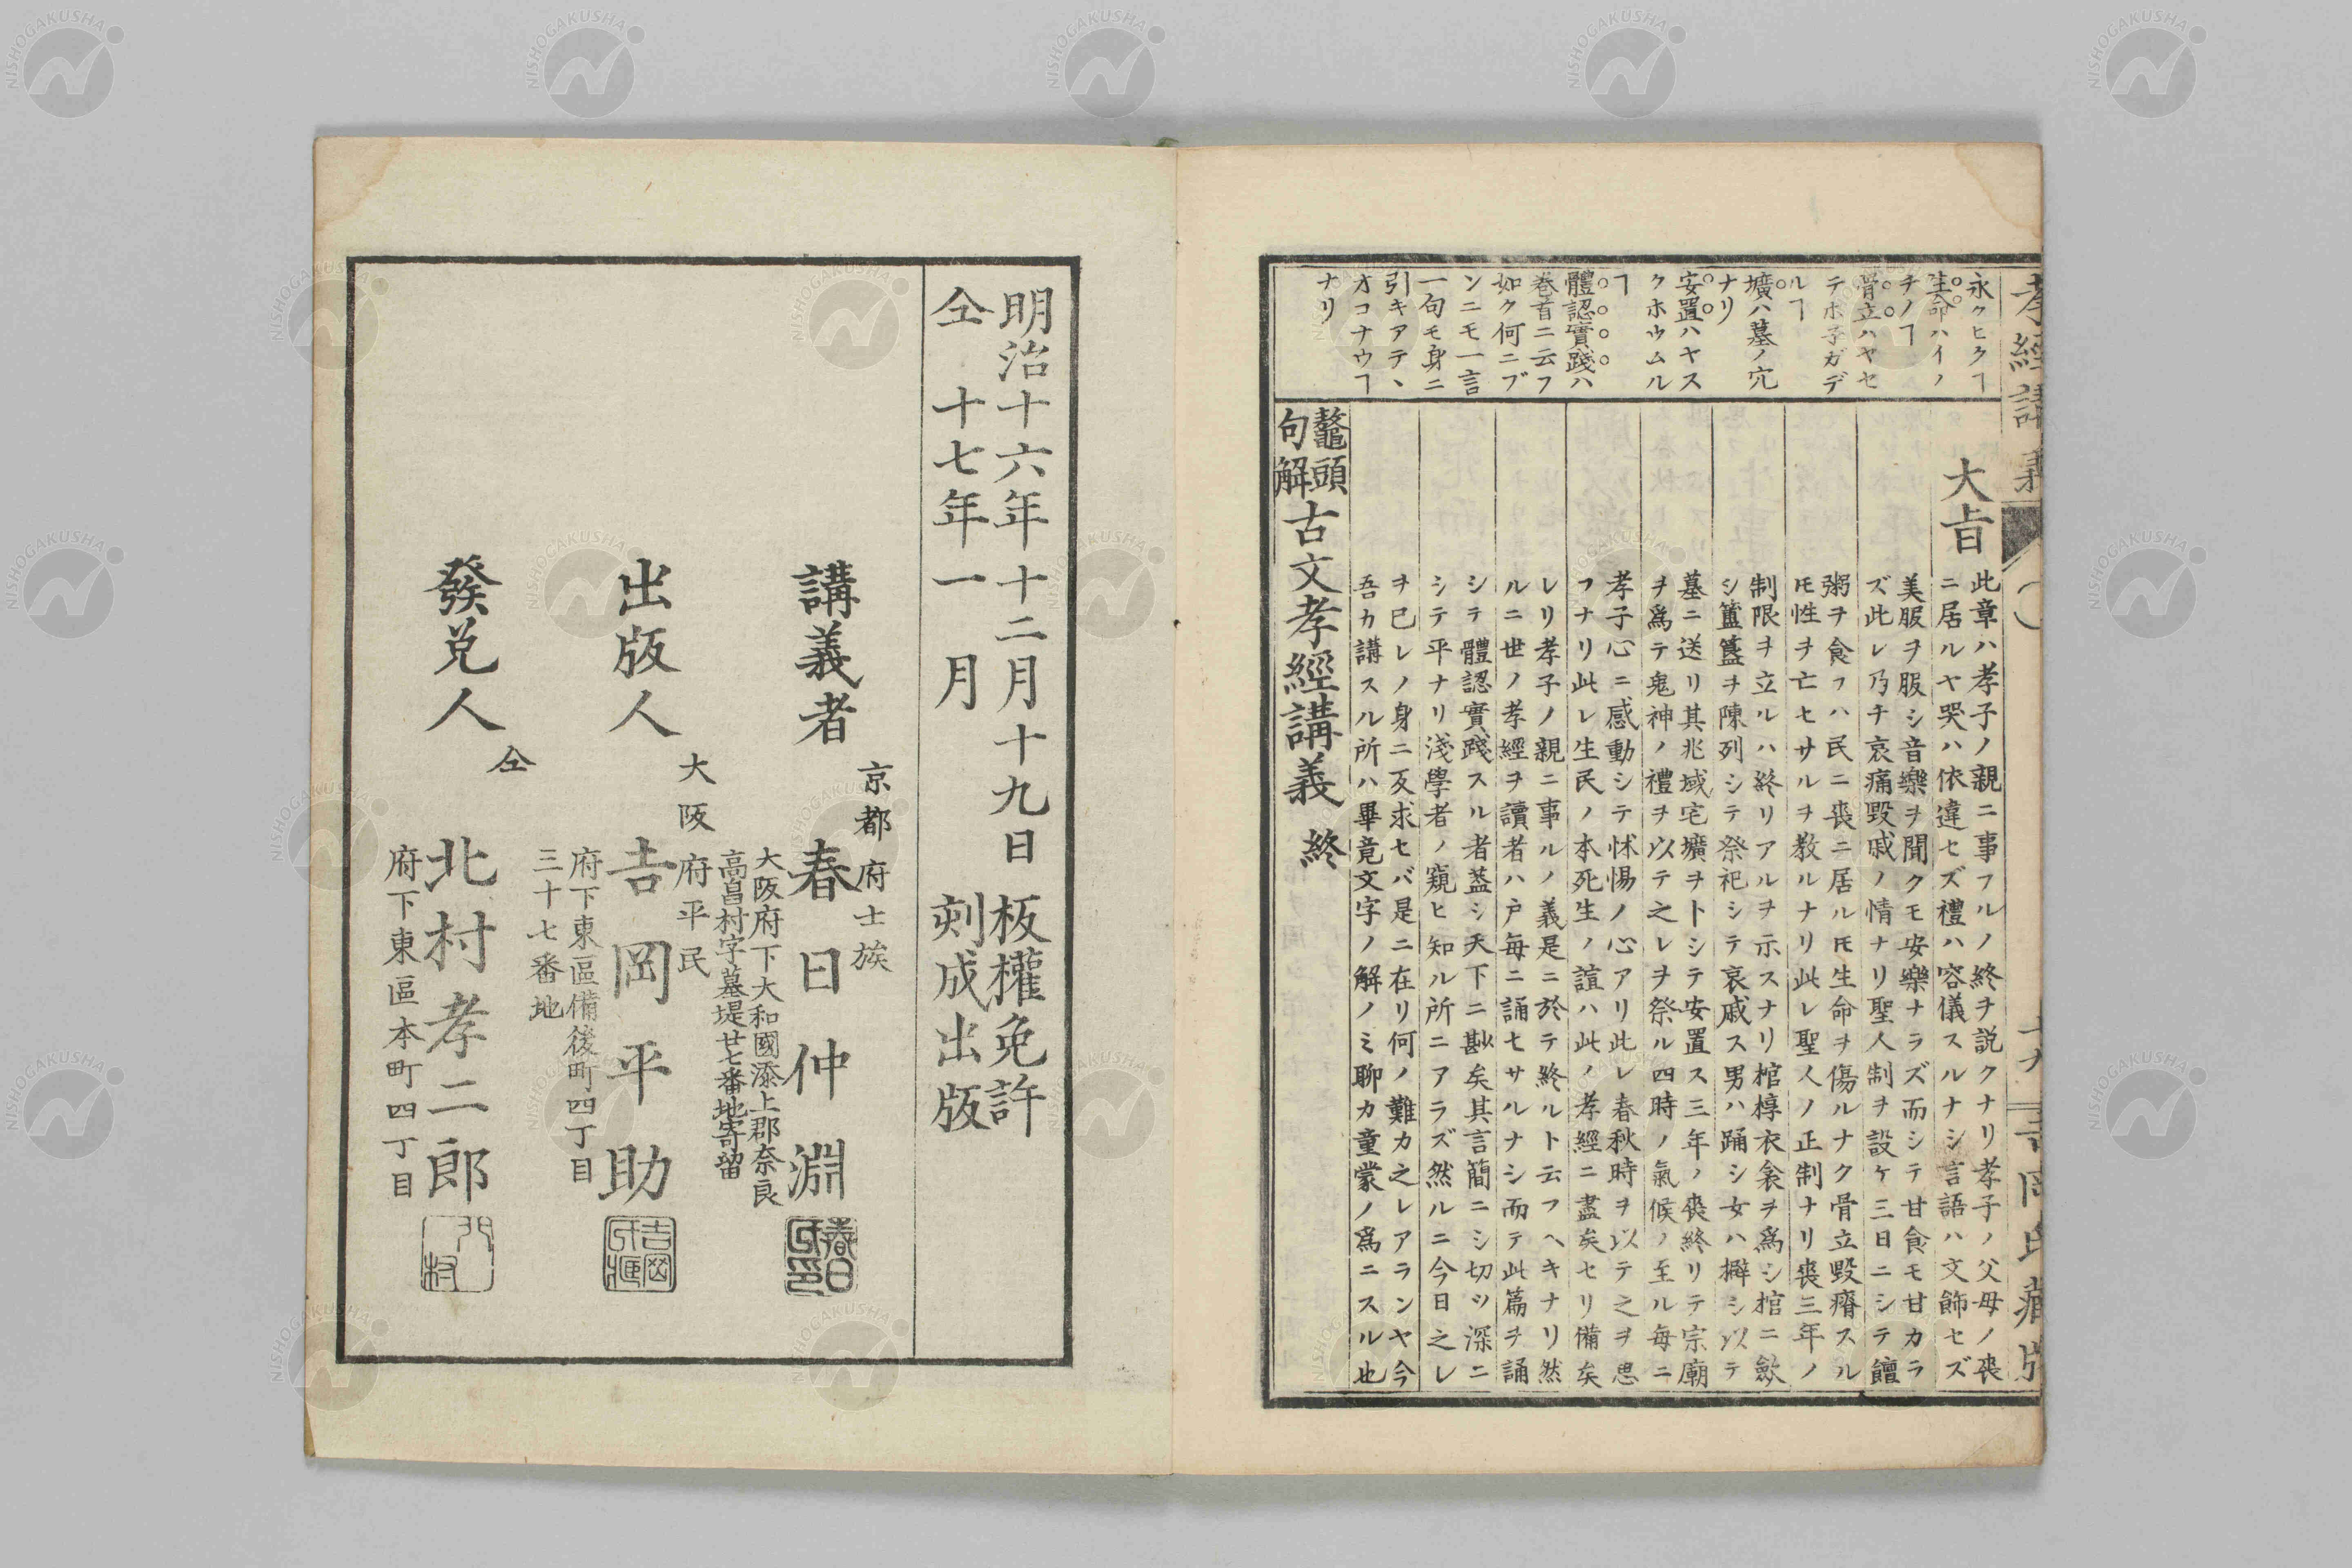 孝經講義
十九
永クヒクヿ
生命ハイノ
チノヿ
骨立ハヤセ
テホ子ガデ
ルヿ
壙ハ墓ノ穴
ナリ
安置ハヤス
クホウムル
ヿ
體認實踐ハ
巻首ニ云フ
如ク何ニブ
ンニモ一言
一句モ身ニ
引キアテヽ
オコナウヿ
ナリ
大旨
此章ハ孝子ノ親ニ事フルノ終ヲ説クナリ孝子ノ父母ノ喪
ニ居ルヤ哭ハ依違セズ禮ハ容儀スルナシ言語ハ文飾セズ
美服ヲ服シ音樂ヲ聞クモ安樂ナラズ而シテ甘食モ甘カラ
ズ此レ乃チ哀痛毀戚ノ情ナリ聖人制ヲ設ケ三日ニシテ饘
粥ヲ食フハ民ニ喪ニ居ルモ生命ヲ傷ルナク骨立毀瘠スル
モ性ヲ亡セサルヲ教ルナリ此レ聖人ノ正制ナリ喪三年ノ
制限ヲ立ルハ終リアルヲ示スナリ棺椁衣衾ヲ爲シ棺ニ歛
シ簠簋ヲ陳列シテ祭祀シテ哀戚ス男ハ踊シ女ハ擗シ以テ
墓ニ送リ其兆域宅壙ヲトシテ安置ス三年ノ喪終リテ宗廟
ヲ爲テ鬼神ノ禮ヲ以テ之レヲ祭ル四時ノ氣候ノ至ル毎ニ
孝子心ニ感動シテ怵惕ノ心アリ此レ春秋時ヲ以テ之ヲ思
フナリ此レ生民ノ本死生ノ誼ハ此ノ孝經ニ盡矣セリ備矣
レリ孝子ノ親ニ事ルノ義是ニ於テ終ルト云フヘキナリ然
ルニ世ノ孝經ヲ讀者ハ戸毎ニ誦セサルナシ而テ此篇ヲ誦
シテ體認實踐スル者葢シ天下ニ尠矣其言簡ニシ切ッ深ニ
シテ平ナリ淺學者ノ窺ヒ知ル所ニアラズ然ルニ今日之レ
ヲ已レノ身ニ反求セバ是ニ在リ何ノ難カ之レアランヤ今
吾カ講スル所ハ畢竟文字ノ解ノミ聊カ童蒙ノ爲ニスル也
鼇頭
句解
古文孝經講義 終
明治十六年十二月十九日 板權免許
仝 十七年一月 刻成出版
京都府士族
講義者 春日仲淵
大阪府下大和國添上郡奈良
高畠村字墓堤廿七番地寄留
大阪府平民
出版人 吉岡平助
府下東區備後町四丁目
三十七番地
仝
發兌人 北村孝二郎
府下東區本町四丁目
NISHOGAKUSHA